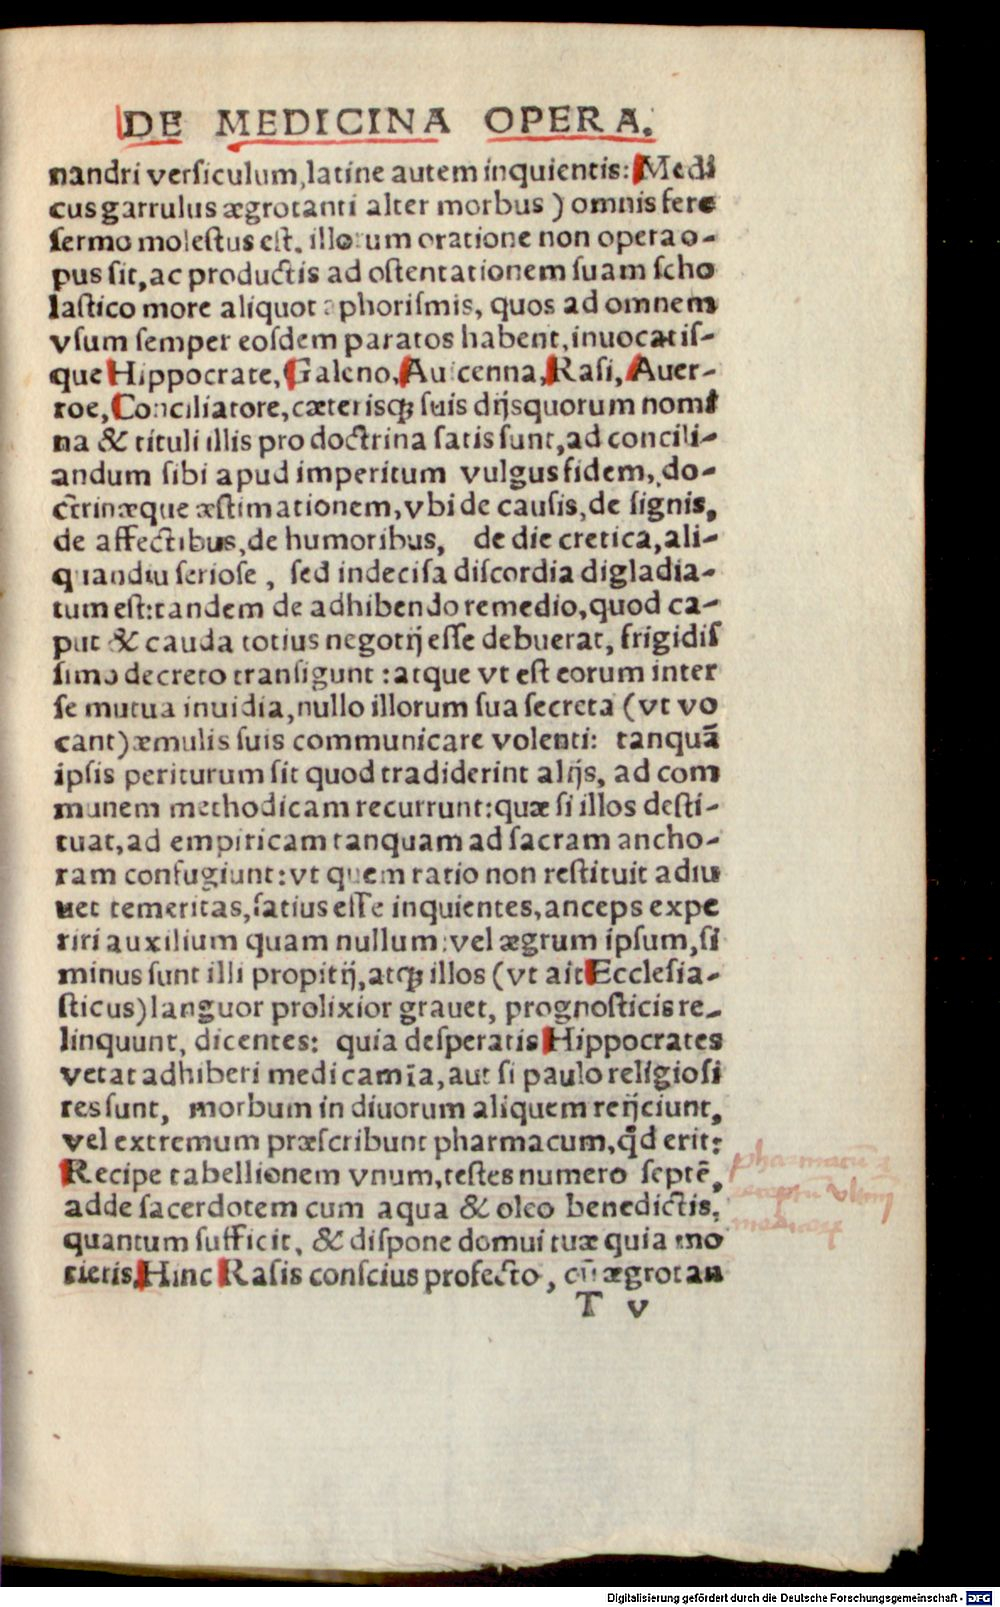 DE MEDICINA OPERA.
nandri verſiculum,latine autem inquientis: Medi
cus garrulus ægrotanti alter morbus ) omnis fere
ſermo moleſtus eſt. illorum oratione non opera o-
pus ſit, ac productis ad oſtentationem ſuam ſcho
laſtico more aliquot aphoriſmis, quos ad omnem
vſum ſemper eoſdem paratos habent, inuocatiſ-
que Hippocrate, Galeno, Auicenna, Raſi, Auer-
roe, Conciliatore, cæterisqꝫ ſuis dijs quorum nomi
na & tituli illis pro doctrina ſatis ſunt, ad concili-
andum ſibi apud imperitum vulgus fidem, do-
ctrinæque æſtimationem, vbi de cauſis, de ſignis,
de affectibus, de humoribus, de die cretica, ali-
quandiu ſerioſe, ſed indeciſa diſcordia digladia-
tum eſt: tandem de adhibendo remedio, quod ca-
put & cauda totius negotij eſſe debuerat, frigidiſ
ſimo decreto tranſigunt : atque vt eſt eorum inter
ſe mutua inuidia, nullo illorum ſua ſecreta (vt vo
cant) æmulis ſuis communicare volenti: tanquā
ipſis periturum ſit quod tradiderint alijs, ad com
munem methodicam recurrunt: quæ ſi illos deſti-
tuat, ad empiricam tanquam ad ſacram ancho-
ram confugiunt: vt quem ratio non reſtituit adiu
uet temeritas, ſatius eſſe inquientes, anceps expe
riri auxilium quam nullum: vel ægrum ipſum, ſi
minus ſunt illi propitij, atqꝫ illos (vt ait Eccleſia-
ſticus) languor prolixior grauet, prognoſticis re-
linquunt, dicentes: quia deſperatis Hippocrates
vetat adhiberi medicamīa, aut ſi paulo religioſi
res ſunt, morbum in diuorum aliquem reijciunt,
vel extremum præſcribunt pharmacum, qd̄ erit:
Recipe tabellionem vnum, teſtes numero ſeptē,
adde ſacerdotem cum aqua & oleo benedictis,
quantum ſufficit, & diſpone domui tuæ quia mo
rieris. Hinc Raſis conſcius profecto, cū ægrotan
T v
pharmacū
receptū
Digitalisierung gefördert durch die Deutsche Forschungsgemeinschaft - DFG